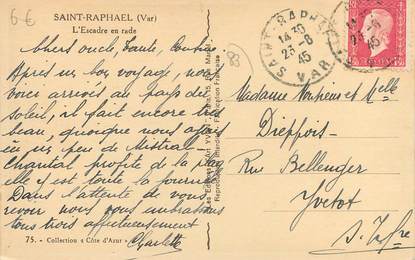 6€
SAINT-RAPHAEL (Var)
L'Escadre en rade
Chers oncle, tante, cousine
Après un bon voyage, nous
voici arrivés au pays du
soleil, il fait encore très
beau, quoique nous ayons
eu un peu de Mistral
Chantal profite de la plage
elle y est toute la journée
Dans l'attente de vous
revoir nous vous embrassons
tous trois affectueusement
Charlotte
75. - Collection « Côte d'Azur »
Reproduction Interdite - Fabrication Française
SAINT-RAPHAEL
14 30
23-8
45
VAR
Madame et Melle
Dieppois
Rue Bellenger
Yvetot
S. Infre